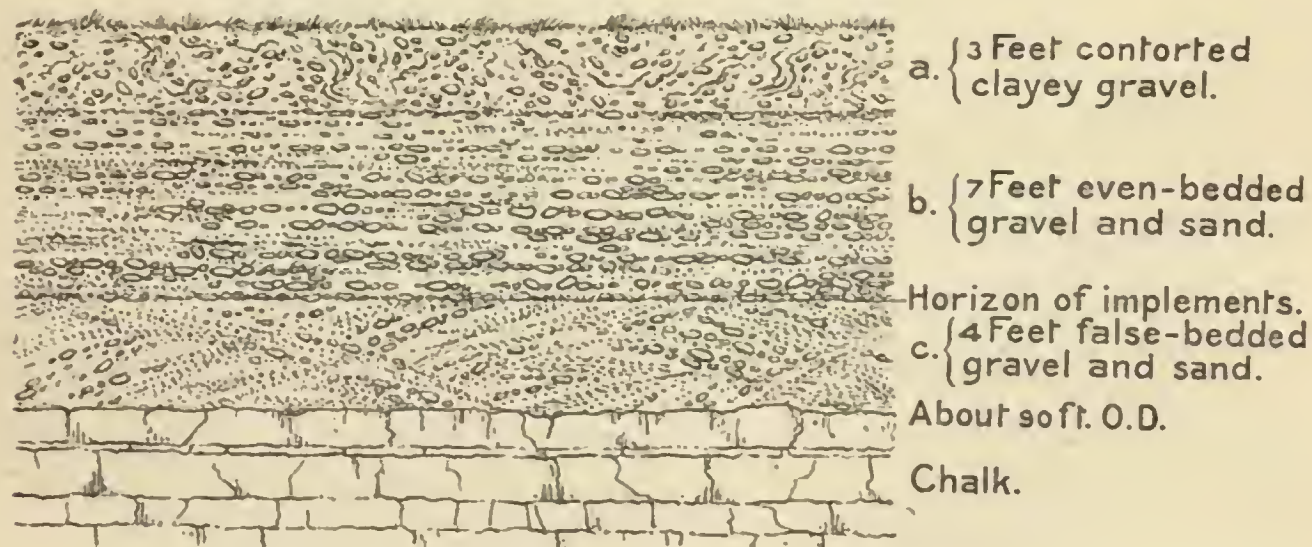 a. { 3 Feet contorted
clayey gravel.
b. { 7 Feet even-bedded
gravel and sand.
Horizon of implements.
c. { 4 Feet false-bedded
gravel and sand.
About 90 ft. O.D.
Chalk.